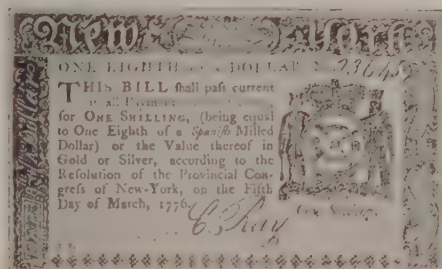 New York
ONE EIGHTH of a DOLLAR. N. 23645
THIS BILL ſhall paſs current
in all Payments
for ONE SHILLING, (being equal
to One Eighth of a Spaniſh Milled
Dollar) or the Value thereof in
Gold or Silver, according to the
Reſolution of the Provincial Con-
greſs of New-York, on the Fifth
Day of March, 1776.
One Shilling.